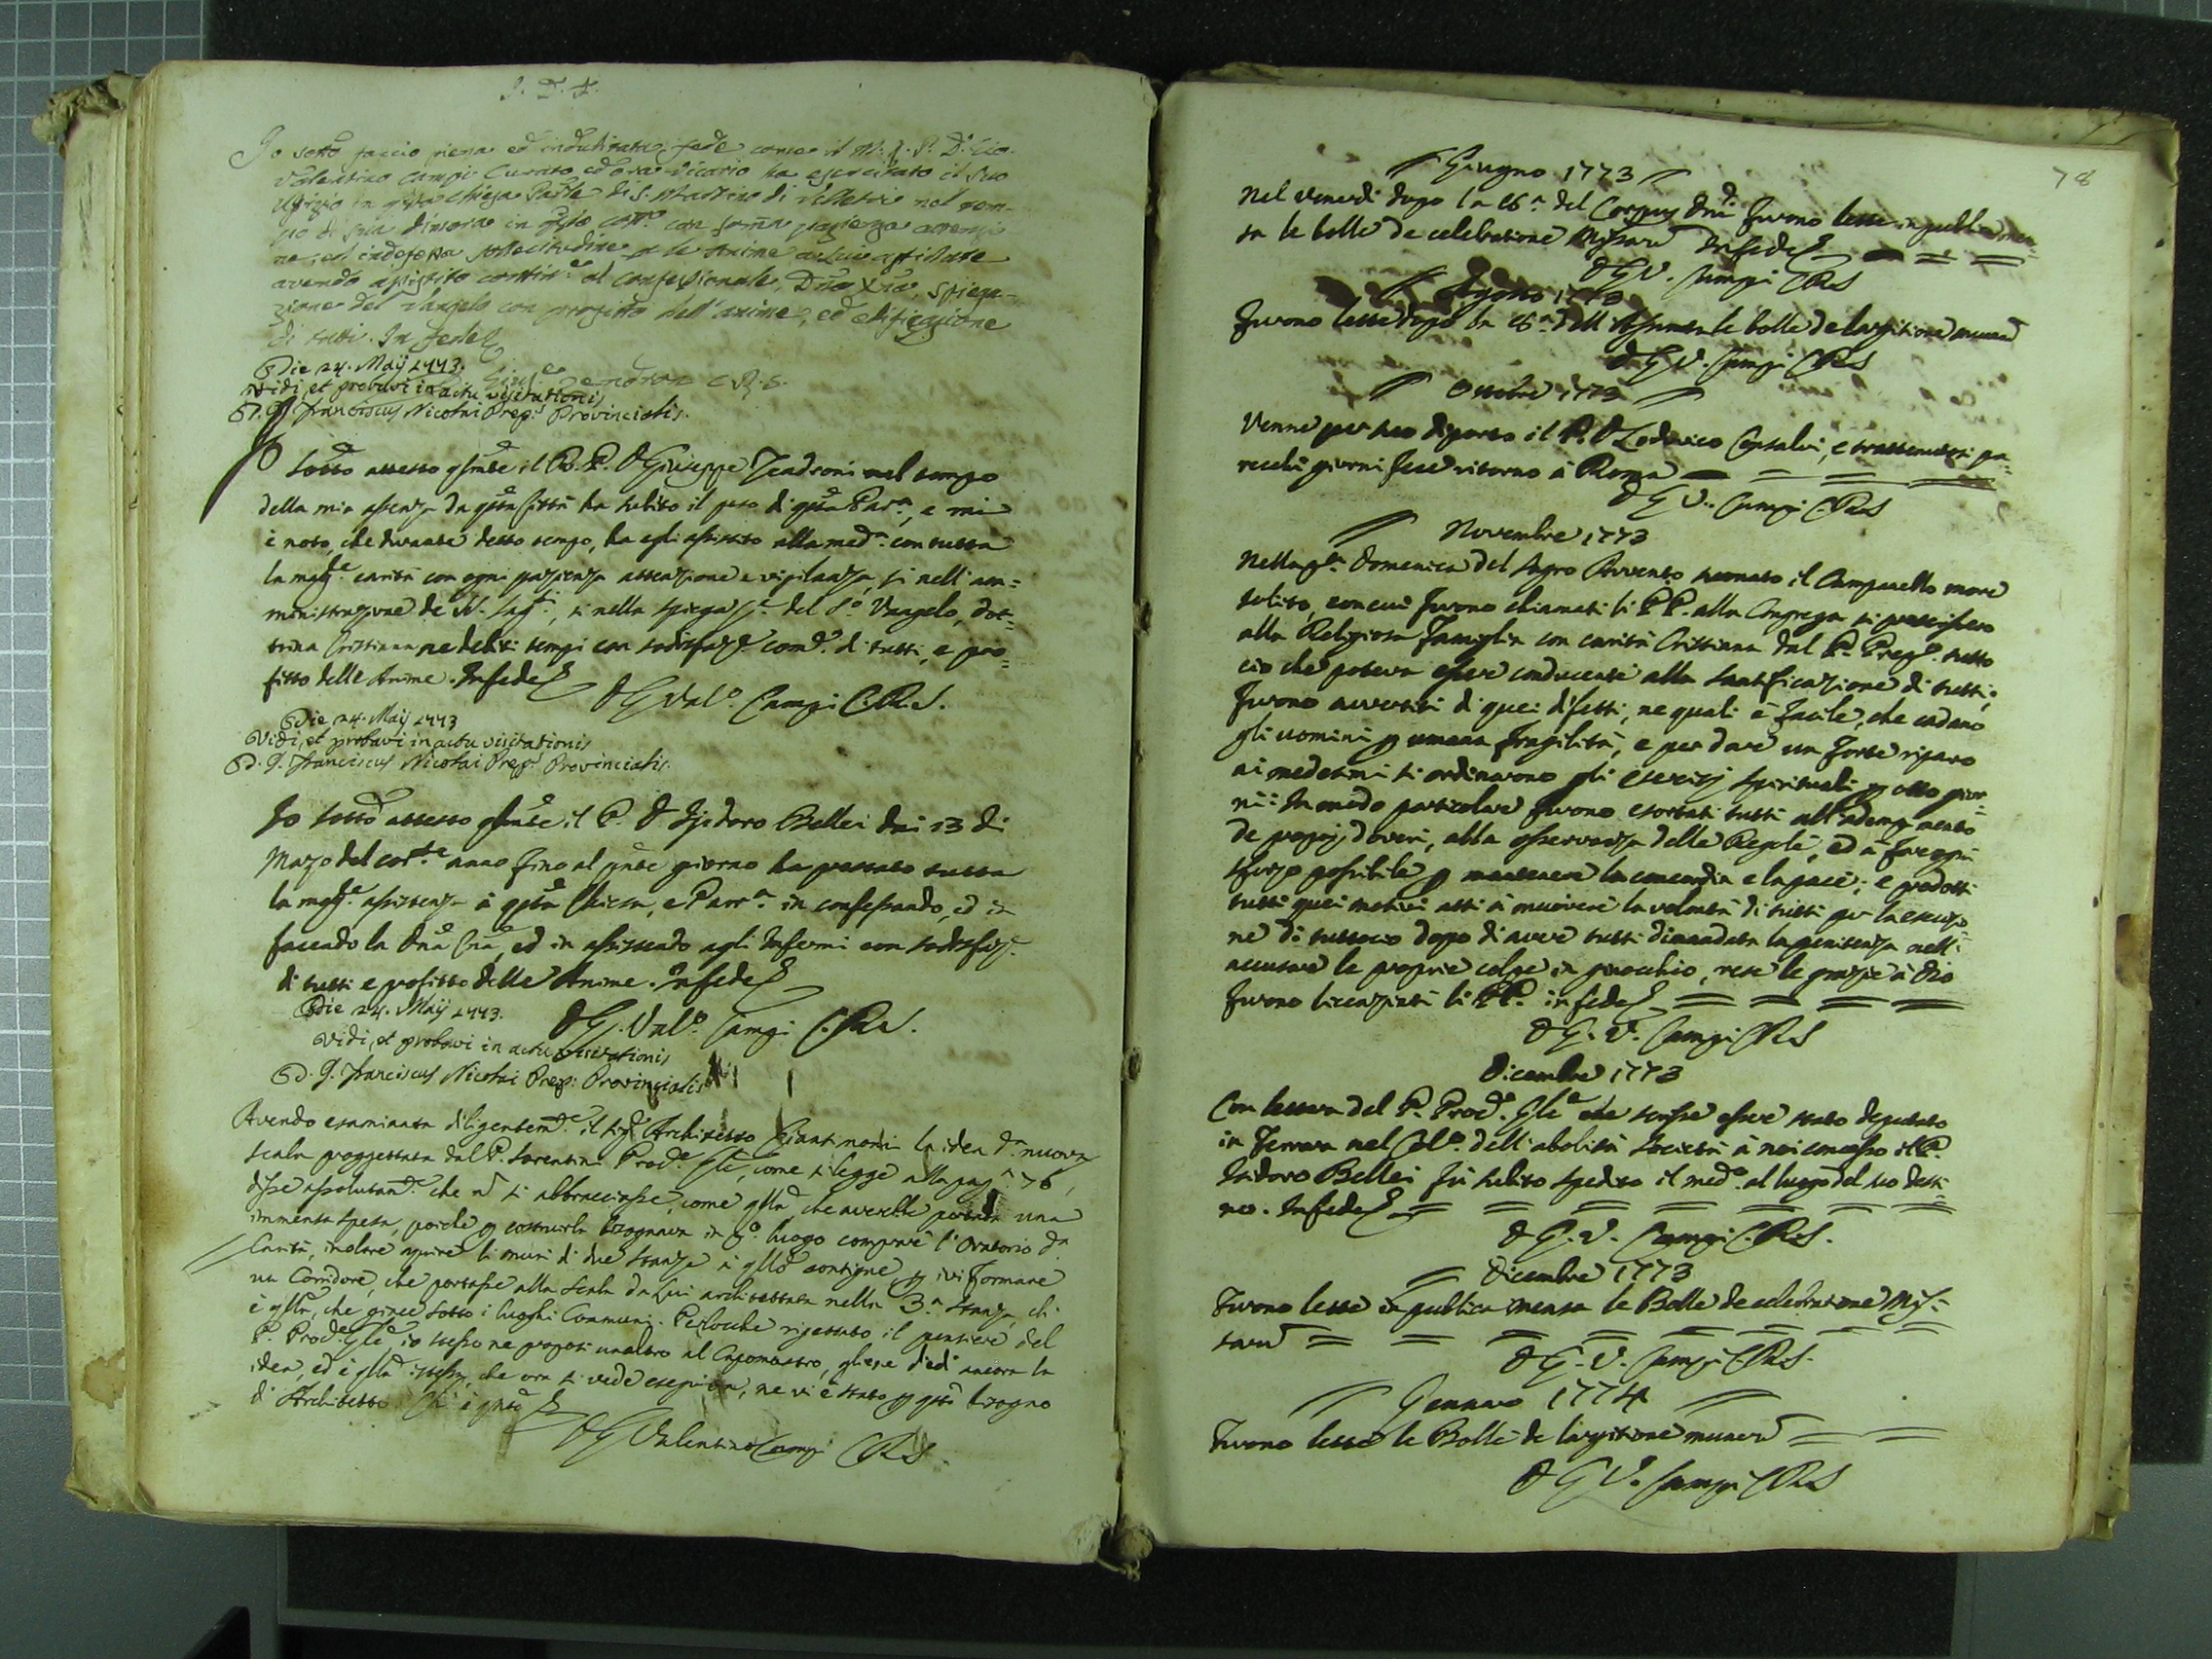 Io sotto faccio piena ed indubitata fede come il M. R. P. D. Gio.
Valentino Campi Curato ed ora Vicario ha esercitato il suo
Chiesa di S. Martino di Velletri nel tem-
po di sua dimora in
ne, ed indefessa sollecitudine a le Anime a lui affidate
avendo assistito al confessionale, Dna Xna, spiega-
zione del Vangelo con profitto dell'anime, ed edificazione
di tutti. In fede
Die 24. Maij 1773.
Vidi, et probavi in actu visitationis
D. G. Franciscus Nicolai Prep. Provincialis.
Io sotto attesto qlmte il R. P. D. Giuseppe Teadroni nel tempo
della mia assenza da qsta Città ha subito il peso di qsta Par.a, e mi
è noto, che durante detto tempo, ha egli assistito alla med.a con tutta
la magg.e carità con ogni pazienza attenzione e vigilanza, si nell'am=
ministrazione de SS. Sag.ti, si nella spiegaz.e del S.o Vangelo, dot=
trina Cristiana ne debiti tempi con sodisfaz.e com.e di tutti, e pro=
fitto delle Anime. In fede
D G Val.o Campi C.R.S.
Die 24. Maij 1773
Vidi, et probavi in actu visitationis
D. G. Franciscus Nicolai Prep. Provincialis.
Io sotto attesto qlmte il P. D Isidoro Bellei dai 13 di
Marzo del cor.te anno fino al pnte giorno ha prestato tutta
la magg.e assistenza à qsta Chiesa, e Parr.a in confessando, ed in
facendo la Dna Xna, ed in assistendo agli Infermi con sodisfaz.e
di tutti e profitto delle Anime. In fede
D G. Val.o Campi C.R.S.
Die 24. Maij 1773.
Vidi, et probavi in actu visitationis
D. G. Franciscus Nicolai Prep: Provincialis
Avendo esaminata diligentem.te il Sig.r Architetto Giantinoni la idea d.a nuova
scala proggettata dal P. Sorentini Prod.e Gle, come si legge alla pag.a 76,
disse assolutam.te che n si abbracciasse, come qlla che averebbe portata una
immensa spesa, poiche p costruirla bisognava in p.o luogo comprare l'Oratorio d.a
Carità, inoltre aprire li muri di due stanze à qllo contigue p ivi formare
un Corridore, che portasse alla scala da lui architettata nella 3.a stanza, ch'
è qlla, che giace sotto i luoghi Communi. Perlocche rigettato il pensiere del
P. Prod.e Gle io stesso ne proposi un altro al Capomastro, gliene diedi ancora la
idea, ed è qlla istessa, che ora si vede eseguita, ne vi è stato p qsto bisogno
di Architetto.
D G Valentino Campi CRS.
78
Giugno 1773
Nel venerdi dopo la 8.a del Corpus Dni furono lette in publica men-
sa le bolle de celebratione Missarum In fede
D G V. Campi CRS
Agosto 1773
Furono lette dopo la 8.a dell'Assunta le bolle de largitione munerum
D G V. Campi CRS
Ottobre 1773
Venne per suo diporto il P. D Lodovico Consalvi, e trattenutosi pa=
recchi giorni fece ritorno à Roma
D G V. Campi CRS
Novembre 1773
Nella p.a Domenica del Sagro Avvento suonato il Campanello more
solito, con cui furono chiamati li PP. alla Congrega si prescrissero
alla Religiosa Famiglia con carità Cristiana dal P. Prep.to tutto
ciò che poteva essere conducente alla santificazione di tutti;
furono avvertiti di quei difetti, ne quali è facile, che cadano
gli uomini p umana fragilità, e per dare un forte riparo
ai medesimi si ordinarono gli esercizj spirituali p otto gior=
ni: In modo particolare furono esortati tutti all'adempimento
de proprj doveri, alla osservanza delle Regole, ed à fare ogni
sforzo possibile p mantenere la concordia e la pace; e prodotti
tutti quei motivi atti à muovere la volontà di tutti per la esecuzio=
ne di tuttociò doppo di avere tutti dimandata la penitenza nell'
accusare le proprie colpe in ginocchio, rese le grazie à Dio
furono licenziati li PP. in fede
D G. V. Campi CRS
Dicembre 1773
Con lettera del P. Prod.e Gle che scrisse essere stato deputato
in Ferrara nel Col.o dell'abolita Società à noi concesso il P.
Isidoro Bellei fù subito spedito il med.o al luogo del suo desti=
no. In fede
D G. V. Campi C.R.S.
Dicembre 1773
Furono lette in publica mensa le Bolle de celebratione Mis=
sarum
D G. V. Campi CRS.
Gennaro 1774
Furono lette le Bolle de largitione munerum
D G V. Campi CRS